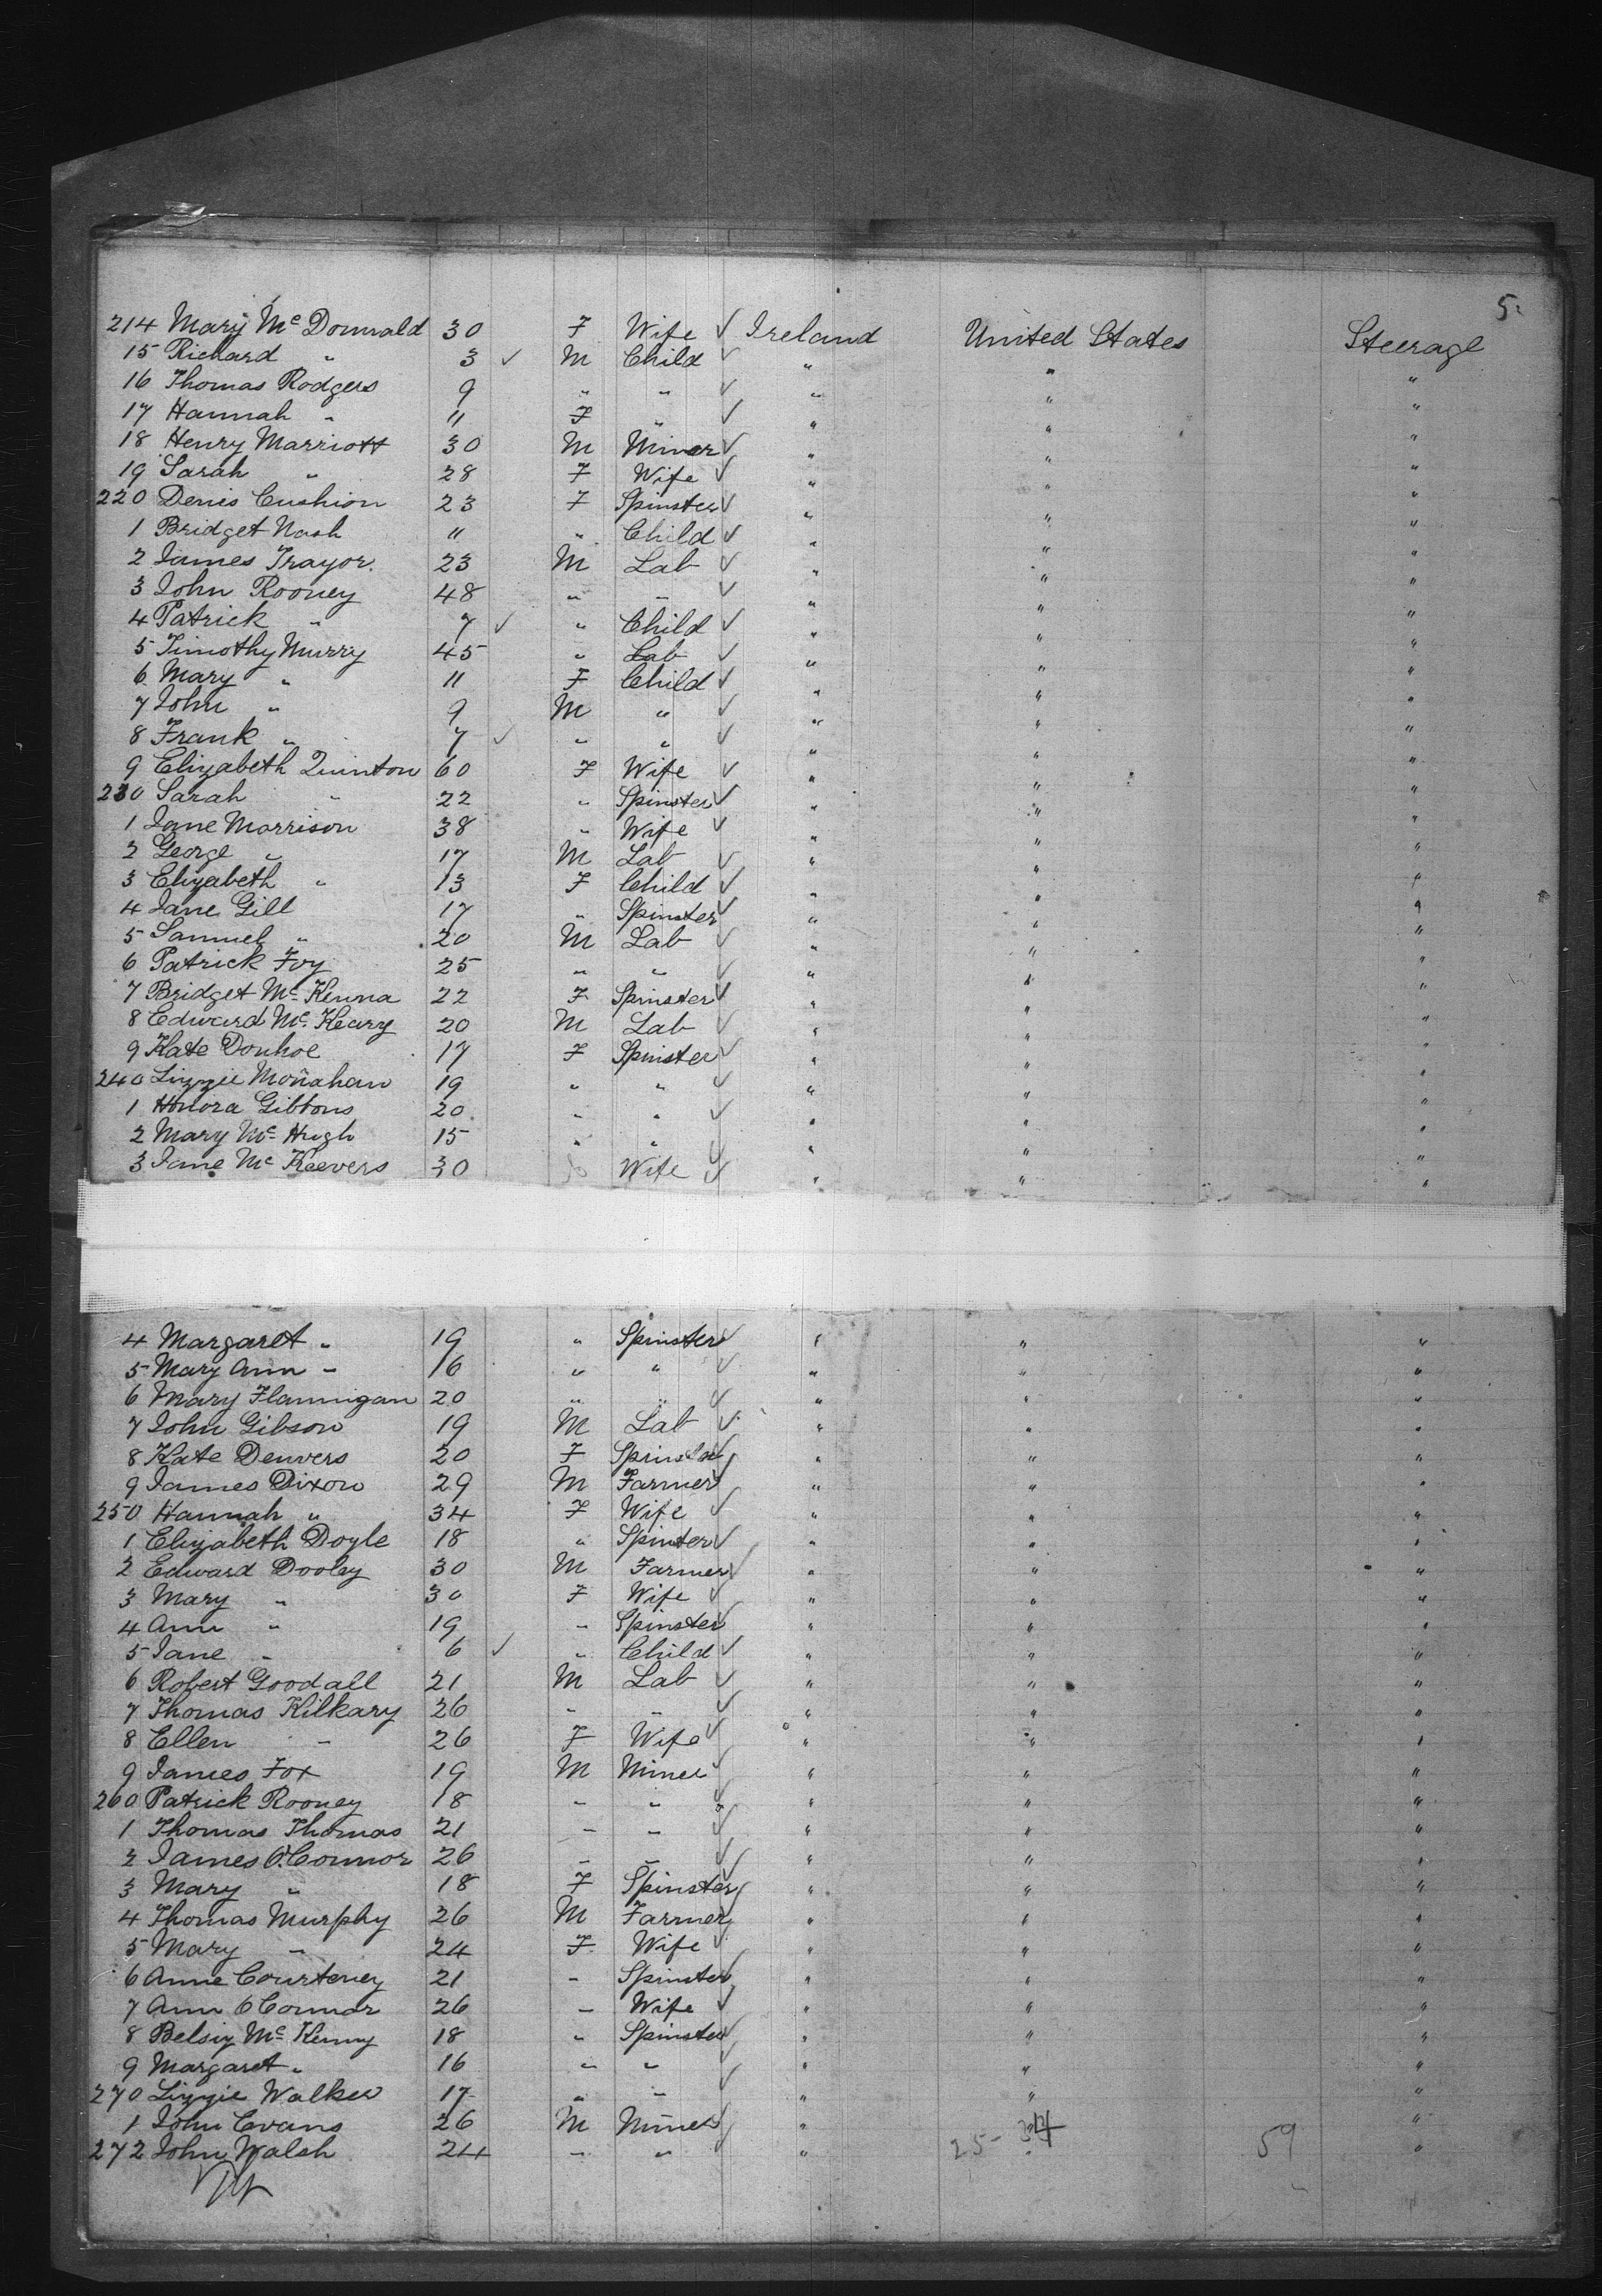 5.
214 Mary Mc Donnald 30 F Wife ✓ Ireland United States Steerage
15 Richard " 3 ✓ M Child ✓ " " "
16 Thomas Rodgers 9 " " ✓ " " "
17 Hannah " 11 F " ✓ " " "
18 Henry Marriott 30 M Miner ✓ " " "
19 Sarah " 28 F Wife ✓ " " "
220 Denis Cushion 23 F Spinster ✓ " " "
1 Bridget Nash 11 " Child ✓ " " "
2 James Trayor. 23 M Lab ✓ " " "
3 John Rooney 48 " " ✓ " " "
4 Patrick " 7 ✓ " Child ✓ " " "
5 Timothy Murry 45 " Lab ✓ " " "
6 Mary " 11 F Child ✓ " " "
7 John " 9 M " ✓ " " "
8 Frank " 7 ✓ " " ✓ " " "
9 Elizabeth Quinton 60 F Wife ✓ " " "
230 Sarah " 22 " Spinster ✓ " " "
1 Jane Morrison 38 " Wife ✓ " " "
2 George " 17 M Lab ✓ " " "
3 Elizabeth " 13 F Child ✓ " " "
4 Jane Gill 17 " Spinster ✓ " " "
5 Samuel " 20 M Lab ✓ " " "
6 Patrick Foy 25 " " ✓ " " "
7 Bridget Mc Kenna 22 F Spinster ✓ " " "
8 Edward Mc Keary 20 M Lab ✓ " " "
9 Kate Donhoe 17 F Spinster ✓ " " "
240 Lizzie Monahan 19 " " ✓ " " "
1 Honora Gibbons 20 " " ✓ " " "
2 Mary Mc Hugh 15 " " ✓ " " "
3 Jane Mc Keevers 30 Wife ✓ " " "
4 Margaret " 19 " Spinster ✓ " " "
5 Mary Ann " 16 " " ✓ " " "
6 Mary Flannigan 20 " " ✓ " " "
7 John Gibson 19 M Lab ✓ " " "
8 Kate Denvers 20 F Spinster ✓ " " "
9 James Dixon 29 M Farmer ✓ " " "
250 Hannah " 34 F Wife ✓ " " "
1 Elizabeth Doyle 18 " Spinster ✓ " " "
2 Edward Dooley 30 M Farmer ✓ " " "
3 Mary " 30 F Wife ✓ " " "
4 Ann " 19 " Spinster ✓ " " "
5 Jane " 6 ✓ " Child ✓ " " "
6 Robert Goodall 21 M Lab ✓ " " "
7 Thomas Kilkary 26 " " ✓ " " "
8 Ellen " 26 F Wife ✓ " " "
9 James Fox 19 M Miner ✓ " " "
260 Patrick Rooney 18 " " ✓ " " "
1 Thomas Thomas 21 " " ✓ " " "
2 James O'Connor 26 " " ✓ " " "
3 Mary " 18 F Spinster ✓ " " "
4 Thomas Murphy 26 M Farmer ✓ " " "
5 Mary " 24 F Wife ✓ " " "
6 Anne Courteney 21 " Spinster ✓ " " "
7 Ann O Connor 26 " Wife ✓ " " "
8 Belsiy Mc Kenny 18 " Spinster ✓ " " "
9 Margaret " 16 " " ✓ " " "
270 Lizzie Walker 17 " " ✓ " " "
1 John Evans 26 M Miner ✓ " " "
272 John Walsh 24 " " ✓ " 25 - 34 59 "